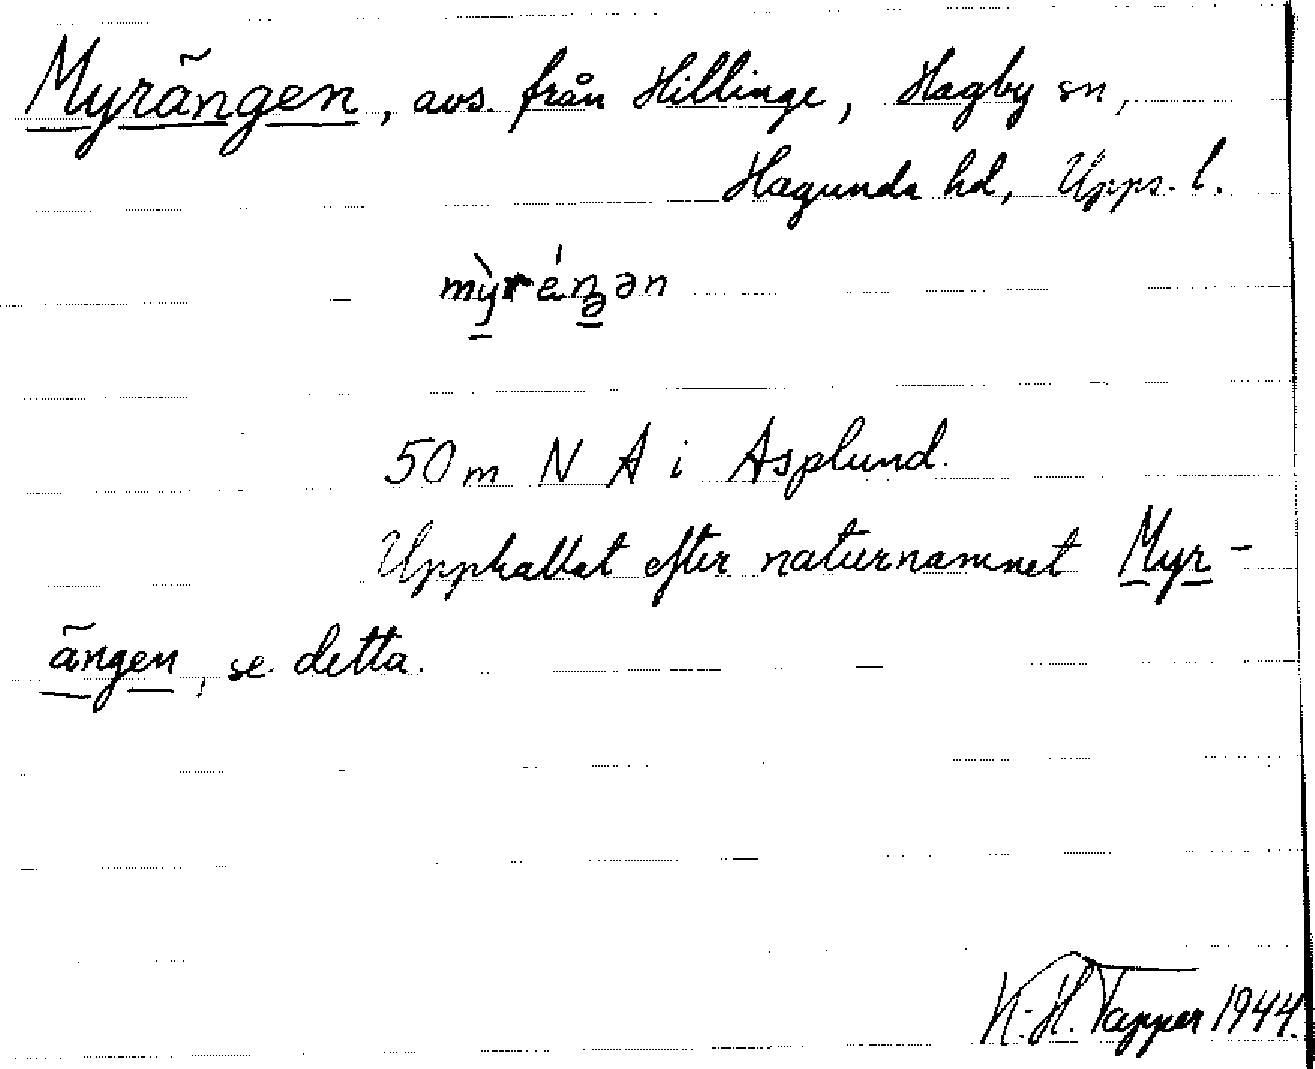 Myrängen, avs. från Hillinge, Hagby sn,
Hagunda hd, Upps. l.
50 m N A i Asplund.
Uppkallat efter naturnamnet Myr-
ängen, se detta.
K.-H. Tapper 1944.